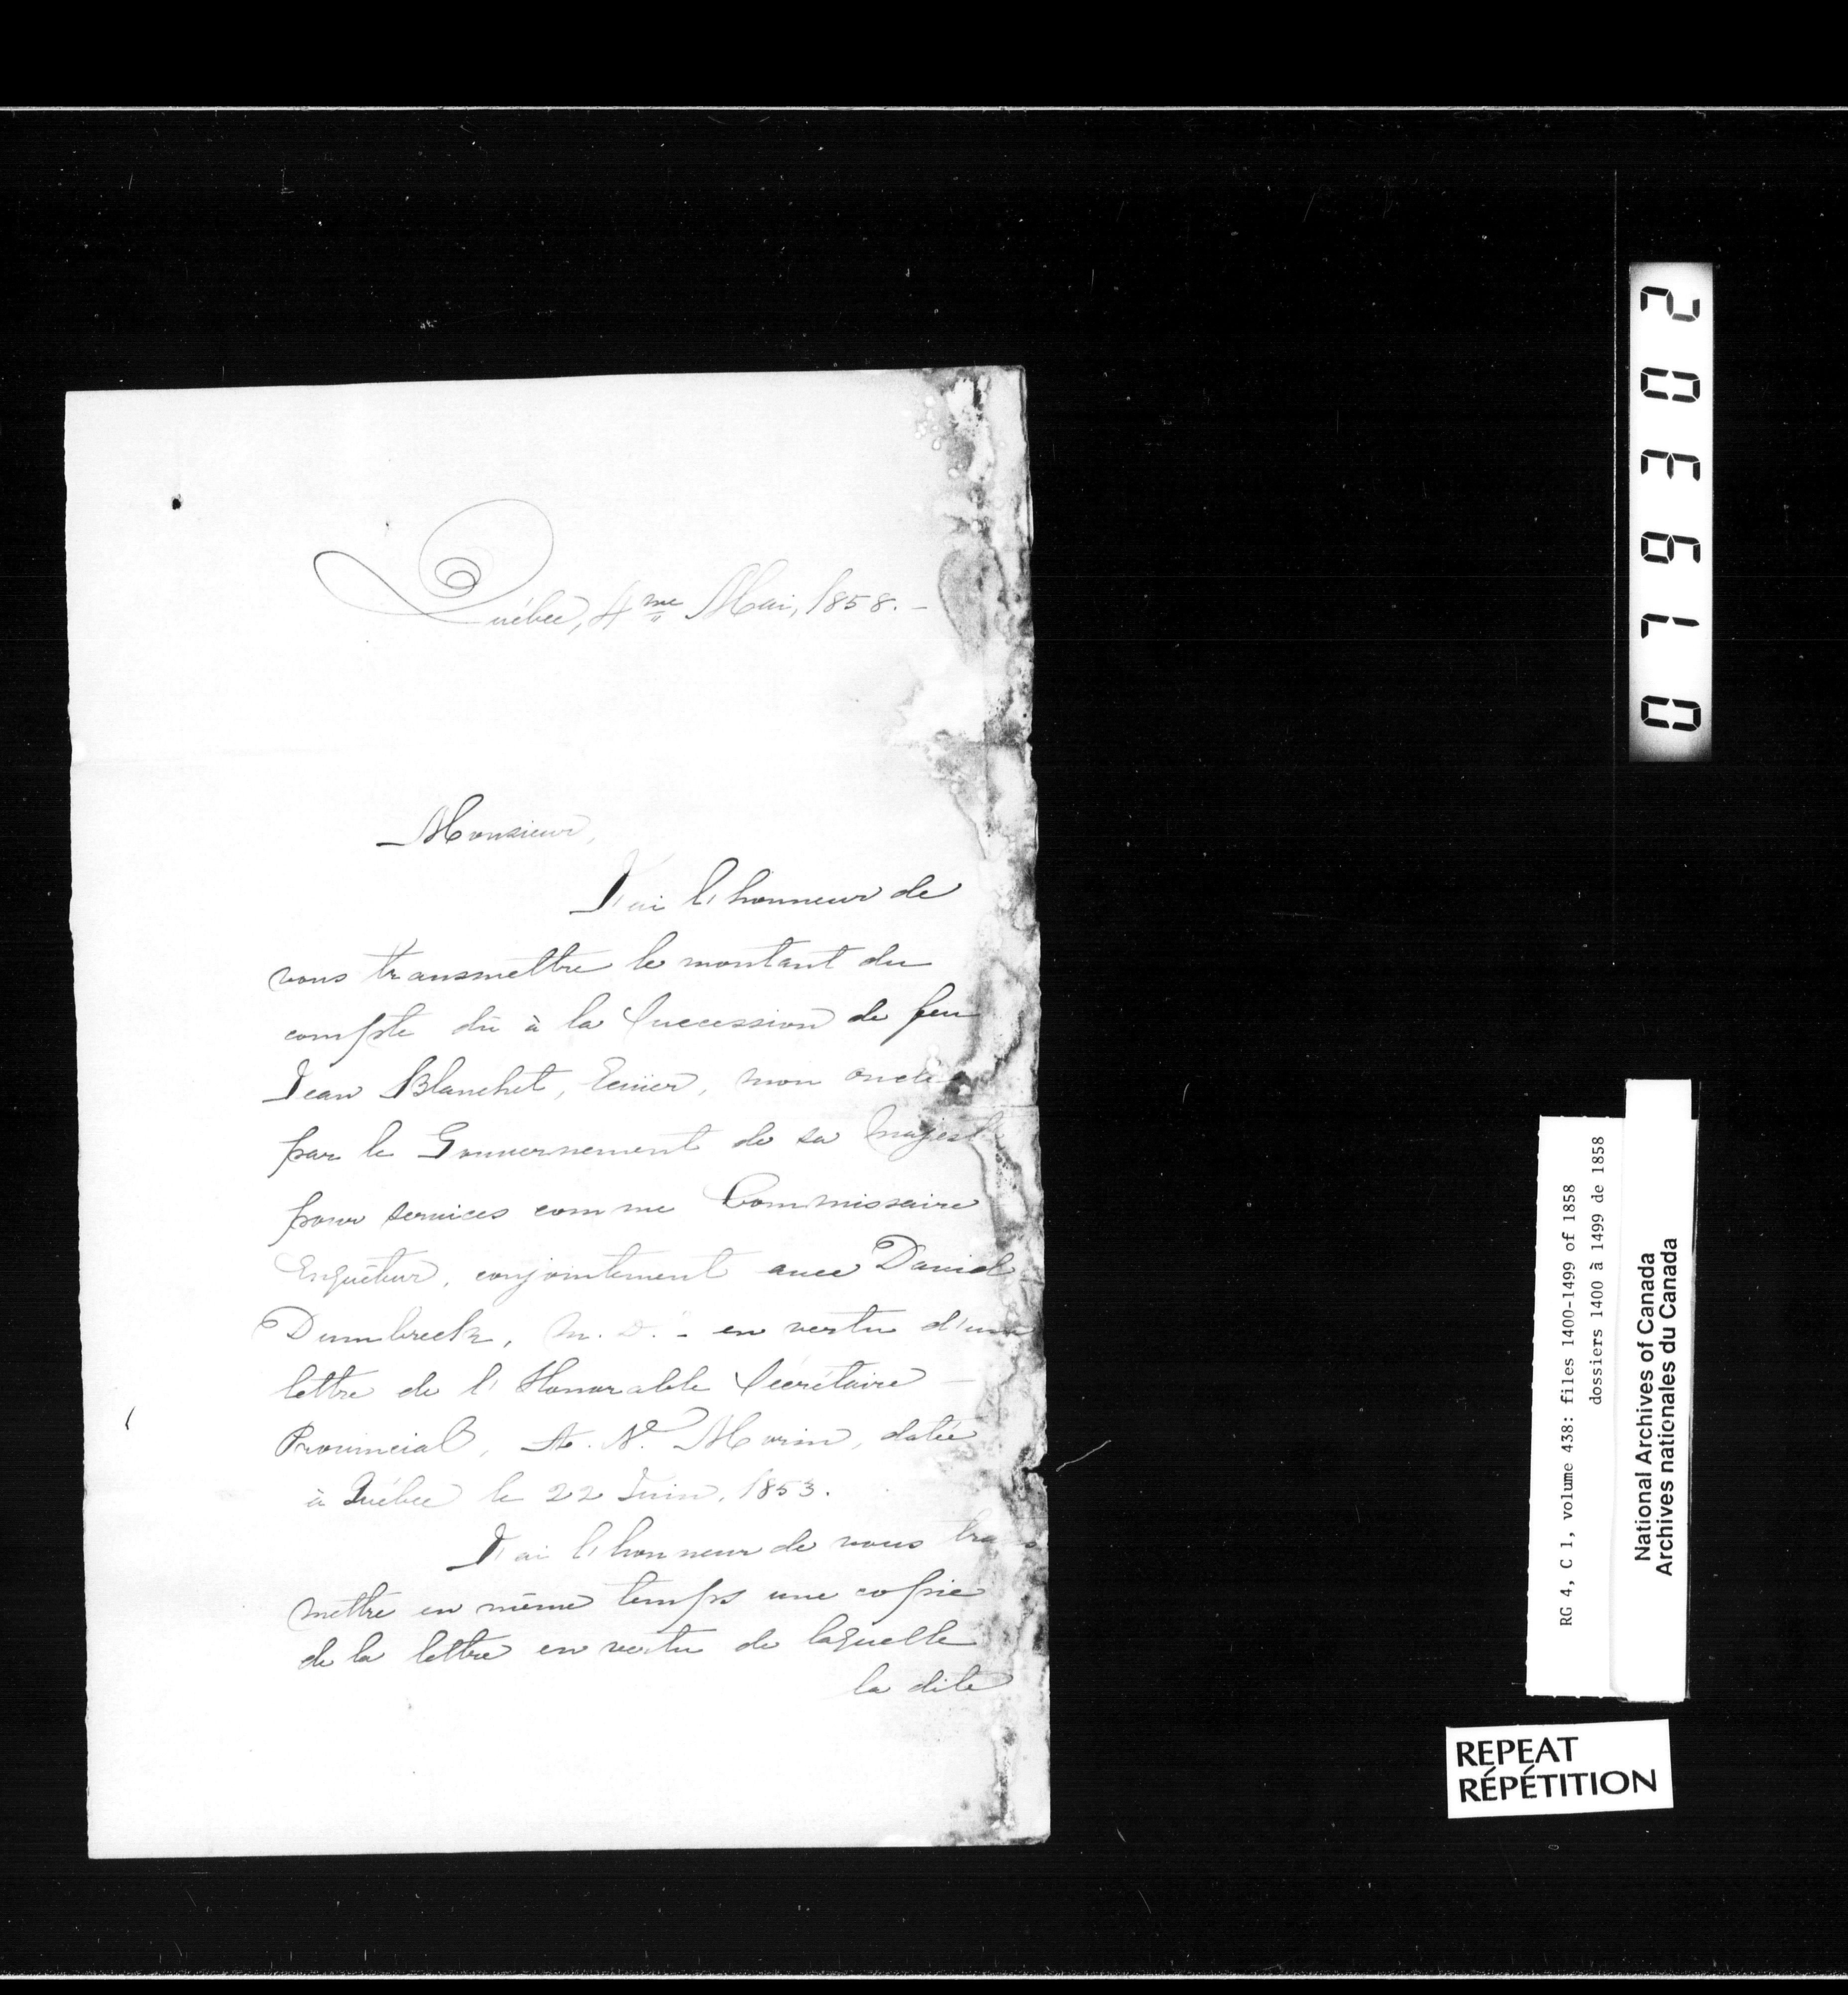 Québec, 4me Mai, 1858. -
Monsieur,
J'ai l'honneur de
vous transmettre le montant du
compte dû à la Succession de feu
Jean Blanchet, Ecuier, mon oncle
par le Gouvernement de sa Majesté
pour services comme Commissaire
Enquêteur, conjointement avec Daniel
Dumbreck, M. D. - en vertu d'une
lettre de l'Honorable Secrétaire -
Provincial, A. N. Morin, datée
à Québec le 22 Juin, 1853.
J'ai l'honneur de vous trans
mettre en même temps une copie
de la lettre en vertu de laquelle
la dite
019302
RG 4, C 1, volume 438: files 1400-1499 of 1858
dossiers 1400 à 1499 de 1858
National Archives of Canada
Archives nationales du Canada
REPEAT
RÉPÉTITION